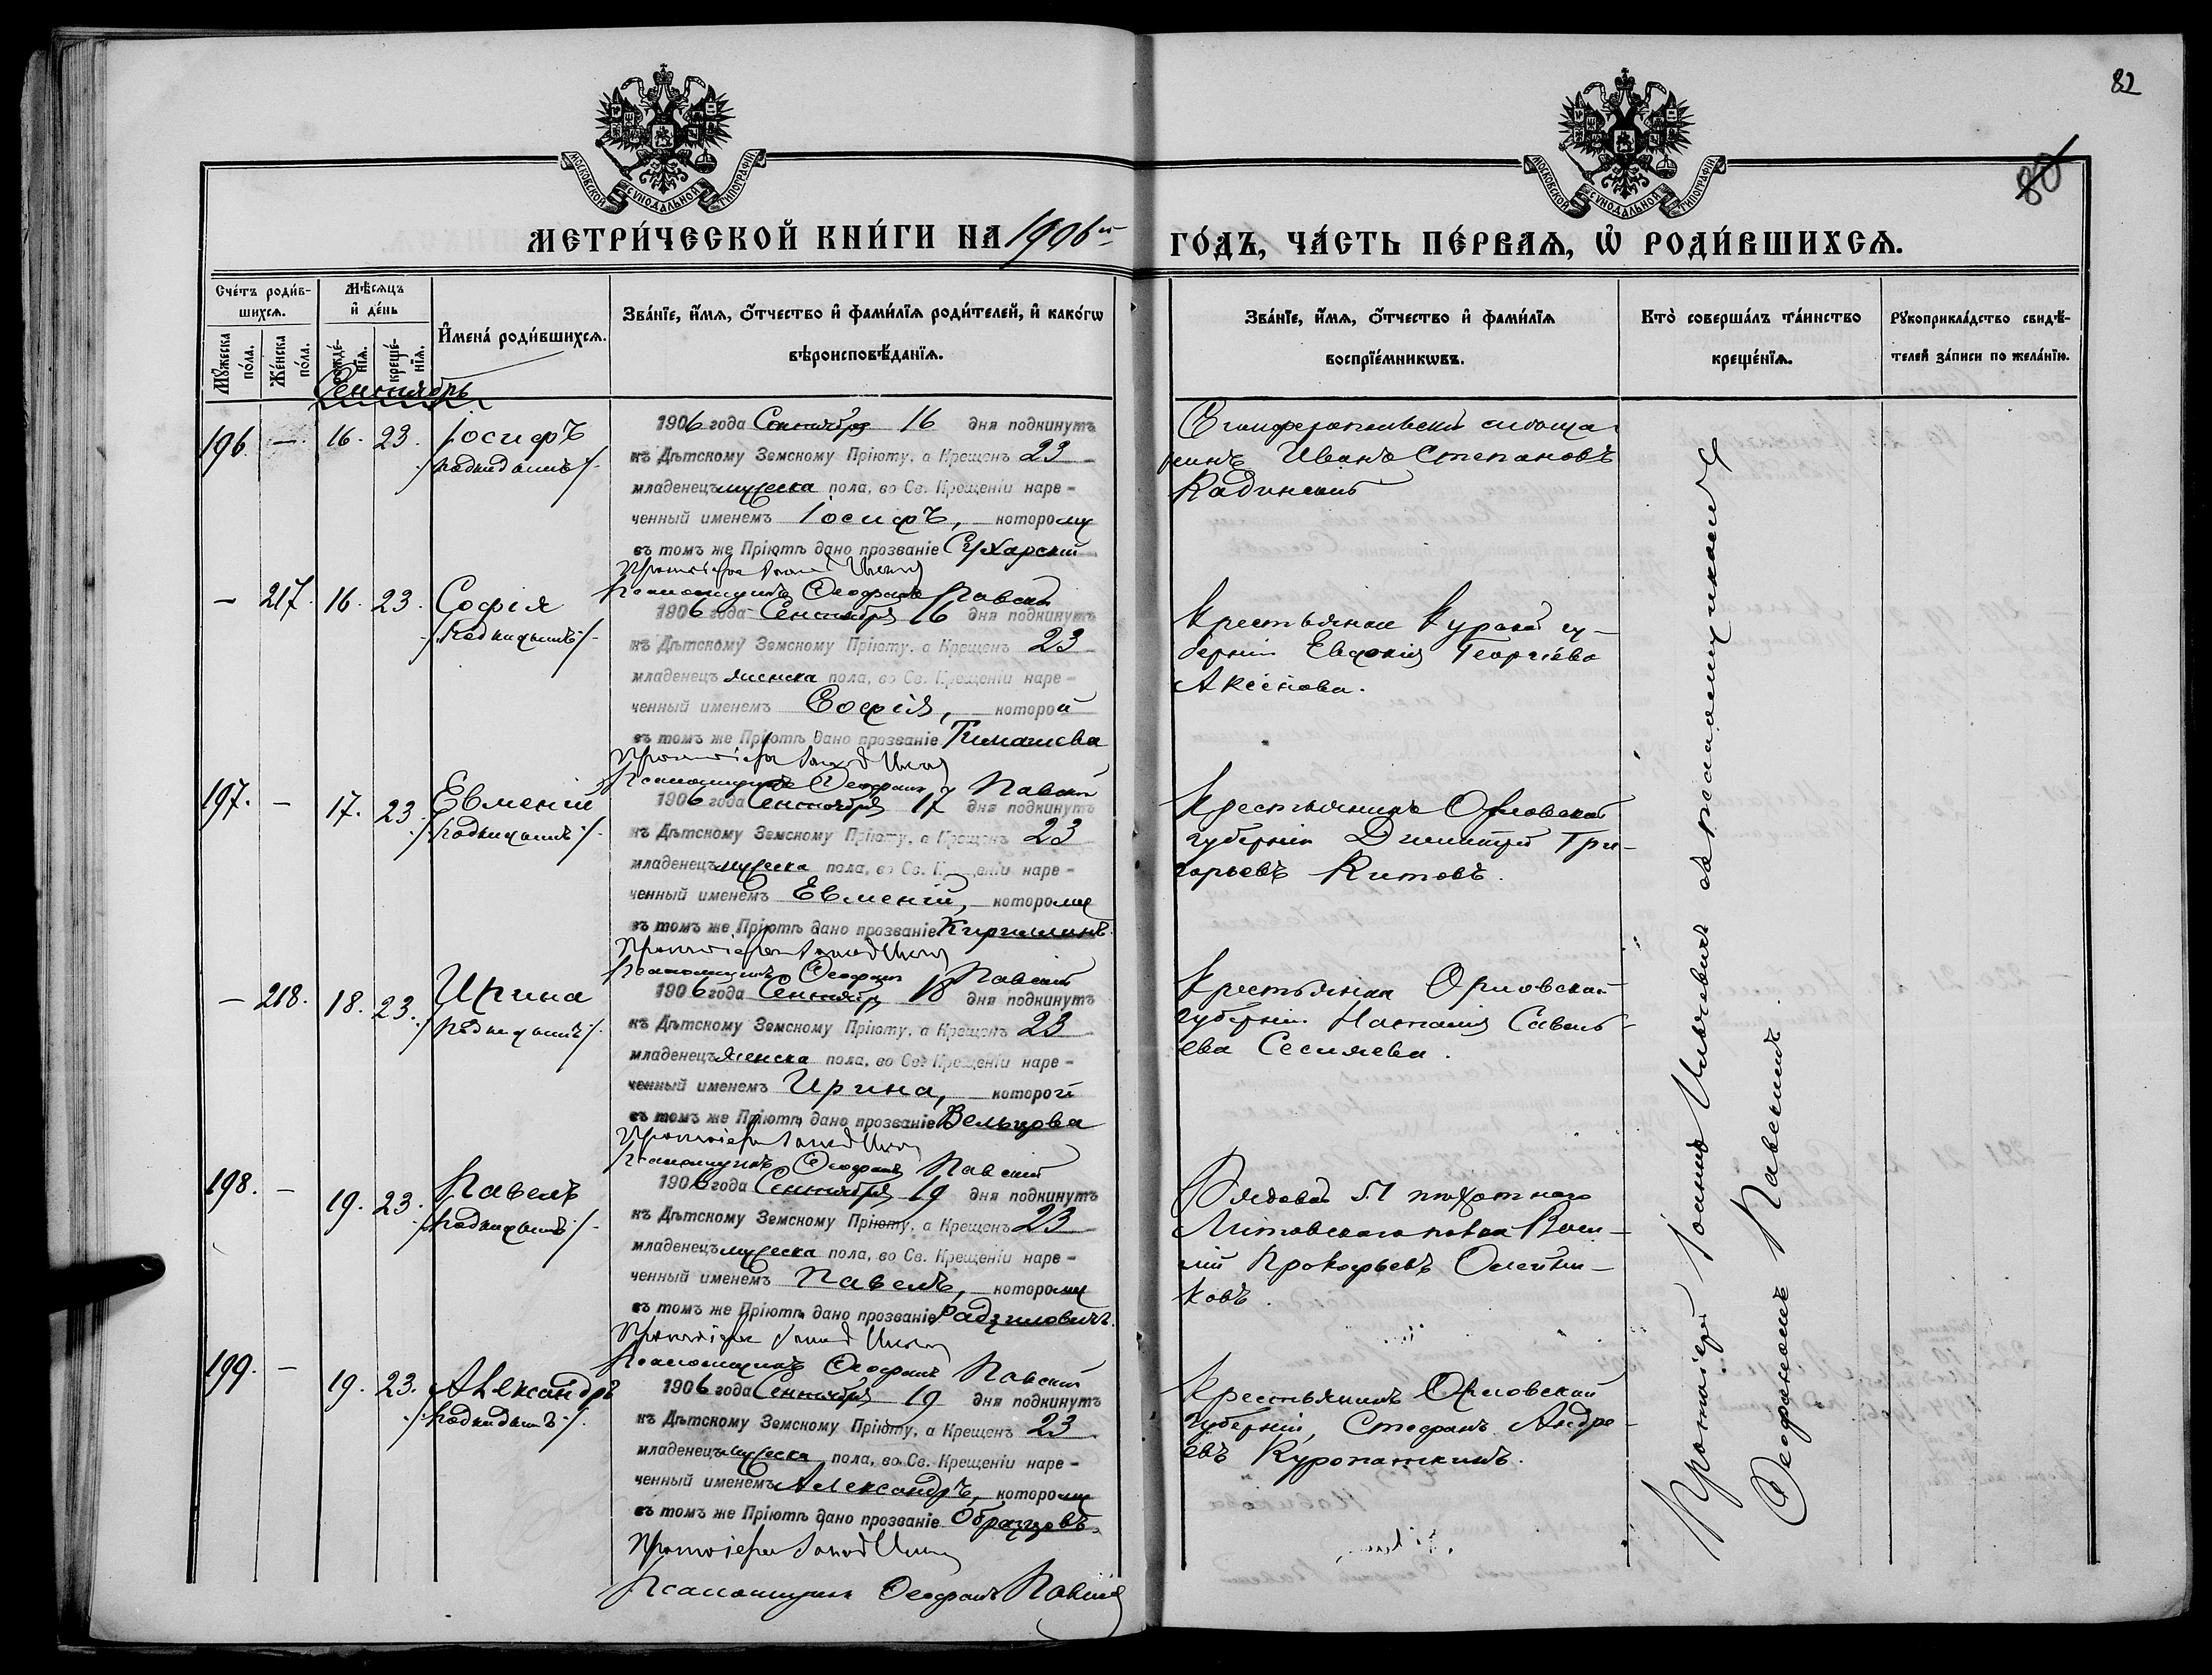 82
80
МОСКОВСКОЙ СѴНОДАЛЬНОЙ ТИПОГРАФІИ
МОСКОВСКОЙ СѴНОДАЛЬНОЙ ТИПОГРАФІИ
МЕТРИ́ЧЕСКОЙ КНИ́ГИ НА 1906й ГО́ДЪ, ЧА́СТЬ ПЕ́РВАѦ, Ѡ҆ РОДИ́ВШИХСѦ.
Сче́тъ роди́в-
шихсѧ.
Мꙋ́жеска по́ла.
Же́нска по́ла.
Мѣ́сѧцъ
и҆ де́нь
рожде́-нїѧ.
креще́-нїѧ.
И҆мена̀ роди́вшихсѧ.
Зва́нїе, и҆́мѧ, ѻ҆́тчество и҆ фами́лїѧ роди́телей, и҆ како́гѡ
вѣроисповѣ́данїѧ.
Зва́нїе, и҆́мѧ, ѻ҆́тчество и҆ фами́лїѧ
воспрїе́мникѡвъ.
Кто̀ соверша́лъ та́инство
креще́нїѧ.
Рꙋкоприкла́дство свидѣ́-
телей за́писи по жела́нїю.
Сентябрь
196. — 16. 23. Іосифъ
/подкидышъ/
1906 года Сентября 16 дня подкинутъ
къ Дѣтскому Земскому Пріюту, а Крещенъ 23
младенецъ мужеска пола, во Св. Крещеніи наре-
ченный именемъ Іосифъ, которому
въ томъ же Пріютѣ дано прозваніе Сухарскій
Протоіерей Іоаннъ
Псаломщикъ Ѳеофанъ Павскій
Симферопольскій мѣща-
нинъ Иванъ Степановъ
Кадинскій
— 217. 16. 23. Софія
/подкидышъ/
1906 года Сентября 16 дня подкинутъ
къ Дѣтскому Земскому Пріюту, а Крещенъ 23
младенецъ женска пола, во Св. Крещеніи наре-
ченный именемъ Софія, которой
въ томъ же Пріютѣ дано прозваніе Тимашева
Протоіерей Іоаннъ
Псаломщикъ Ѳеофанъ Павскій
Крестьянка Курской гу-
берніи Евдокія Георгіева
Аксенова.
197. — 17. 23. Евменій
/подкидышъ/
1906 года Сентября 17 дня подкинутъ
къ Дѣтскому Земскому Пріюту, а Крещенъ 23
младенецъ мужеска пола, во Св. Крещеніи наре-
ченный именемъ Евменій, которому
въ томъ же Пріютѣ дано прозваніе Кирилинъ.
Протоіерей Іоаннъ
Псаломщикъ Ѳеофанъ Павскій
Крестьянинъ Орловской
губерніи Димитрій Гри-
горьевъ Китовъ.
— 218. 18. 23. Ирина
/подкидышъ/
1906 года Сентября 18 дня подкинутъ
къ Дѣтскому Земскому Пріюту, а Крещенъ 23
младенецъ женска пола, во Св. Крещеніи наре-
ченный именемъ Ирина, которой
въ томъ же Пріютѣ дано прозваніе Вельцова
Протоіерей Іоаннъ
Псаломщикъ Ѳеофанъ Павскій
Крестьянка Орловской
губерніи Наталія Савель-
ева
198. — 19. 23. Павелъ
/подкидышъ/
1906 года Сентября 19 дня подкинутъ
къ Дѣтскому Земскому Пріюту, а Крещенъ 23
младенецъ мужеска пола, во Св. Крещеніи наре-
ченный именемъ Павелъ, которому
въ томъ же Пріютѣ дано прозваніе Радзиловичъ.
Протоіерей Іоаннъ
Псаломщикъ Ѳеофанъ Павскій
Рядовой 51 пѣхотнаго
Литовскаго полка Васи-
лій Прокофьевъ Олейни-
ковъ.
199. — 19. 23. Александръ
/подкидышъ/
1906 года Сентября 19 дня подкинутъ
къ Дѣтскому Земскому Пріюту, а Крещенъ 23
младенецъ мужеска пола, во Св. Крещеніи наре-
ченный именемъ Александръ, которому
въ томъ же Пріютѣ дано прозваніе Образцовъ.
Протоіерей Іоаннъ
Псаломщикъ Ѳеофанъ Павскій
Крестьянинъ Орловской
губерніи, Стефанъ Андре-
евъ Куропаткинъ.
Протоіерей Іоаннъ съ псаломщикомъ
Ѳеофаномъ Павскимъ.